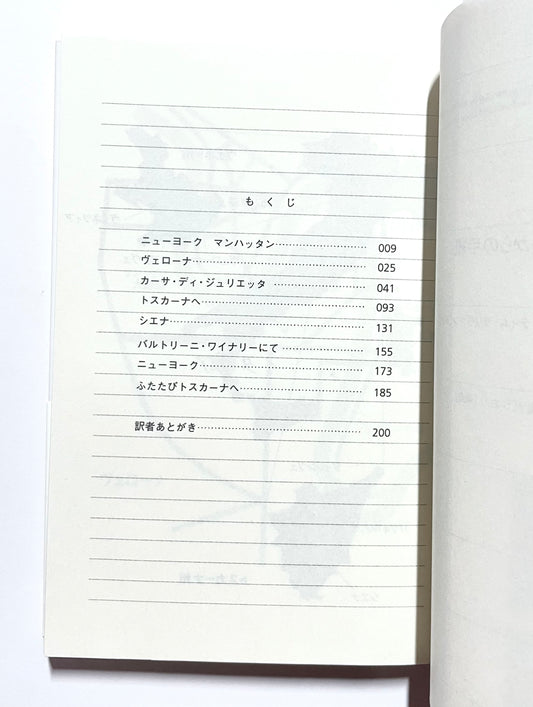 もくじ
ニューヨーク　マンハッタン……………………009
ヴェローナ……………………………………025
カーサ・ディ・ジュリエッタ……………………041
トスカーナへ…………………………………093
シエナ…………………………………………131
バルトリーニ・ワイナリーにて…………………155
ニューヨーク…………………………………173
ふたたびトスカーナへ…………………………185
訳者あとがき…………………………………200